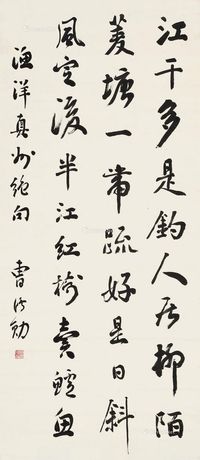 江干多是釣人居柳陌
菱塘一帶疏好是日斜
風定後半江紅樹賣鱸魚
漁洋真州絕句 曹